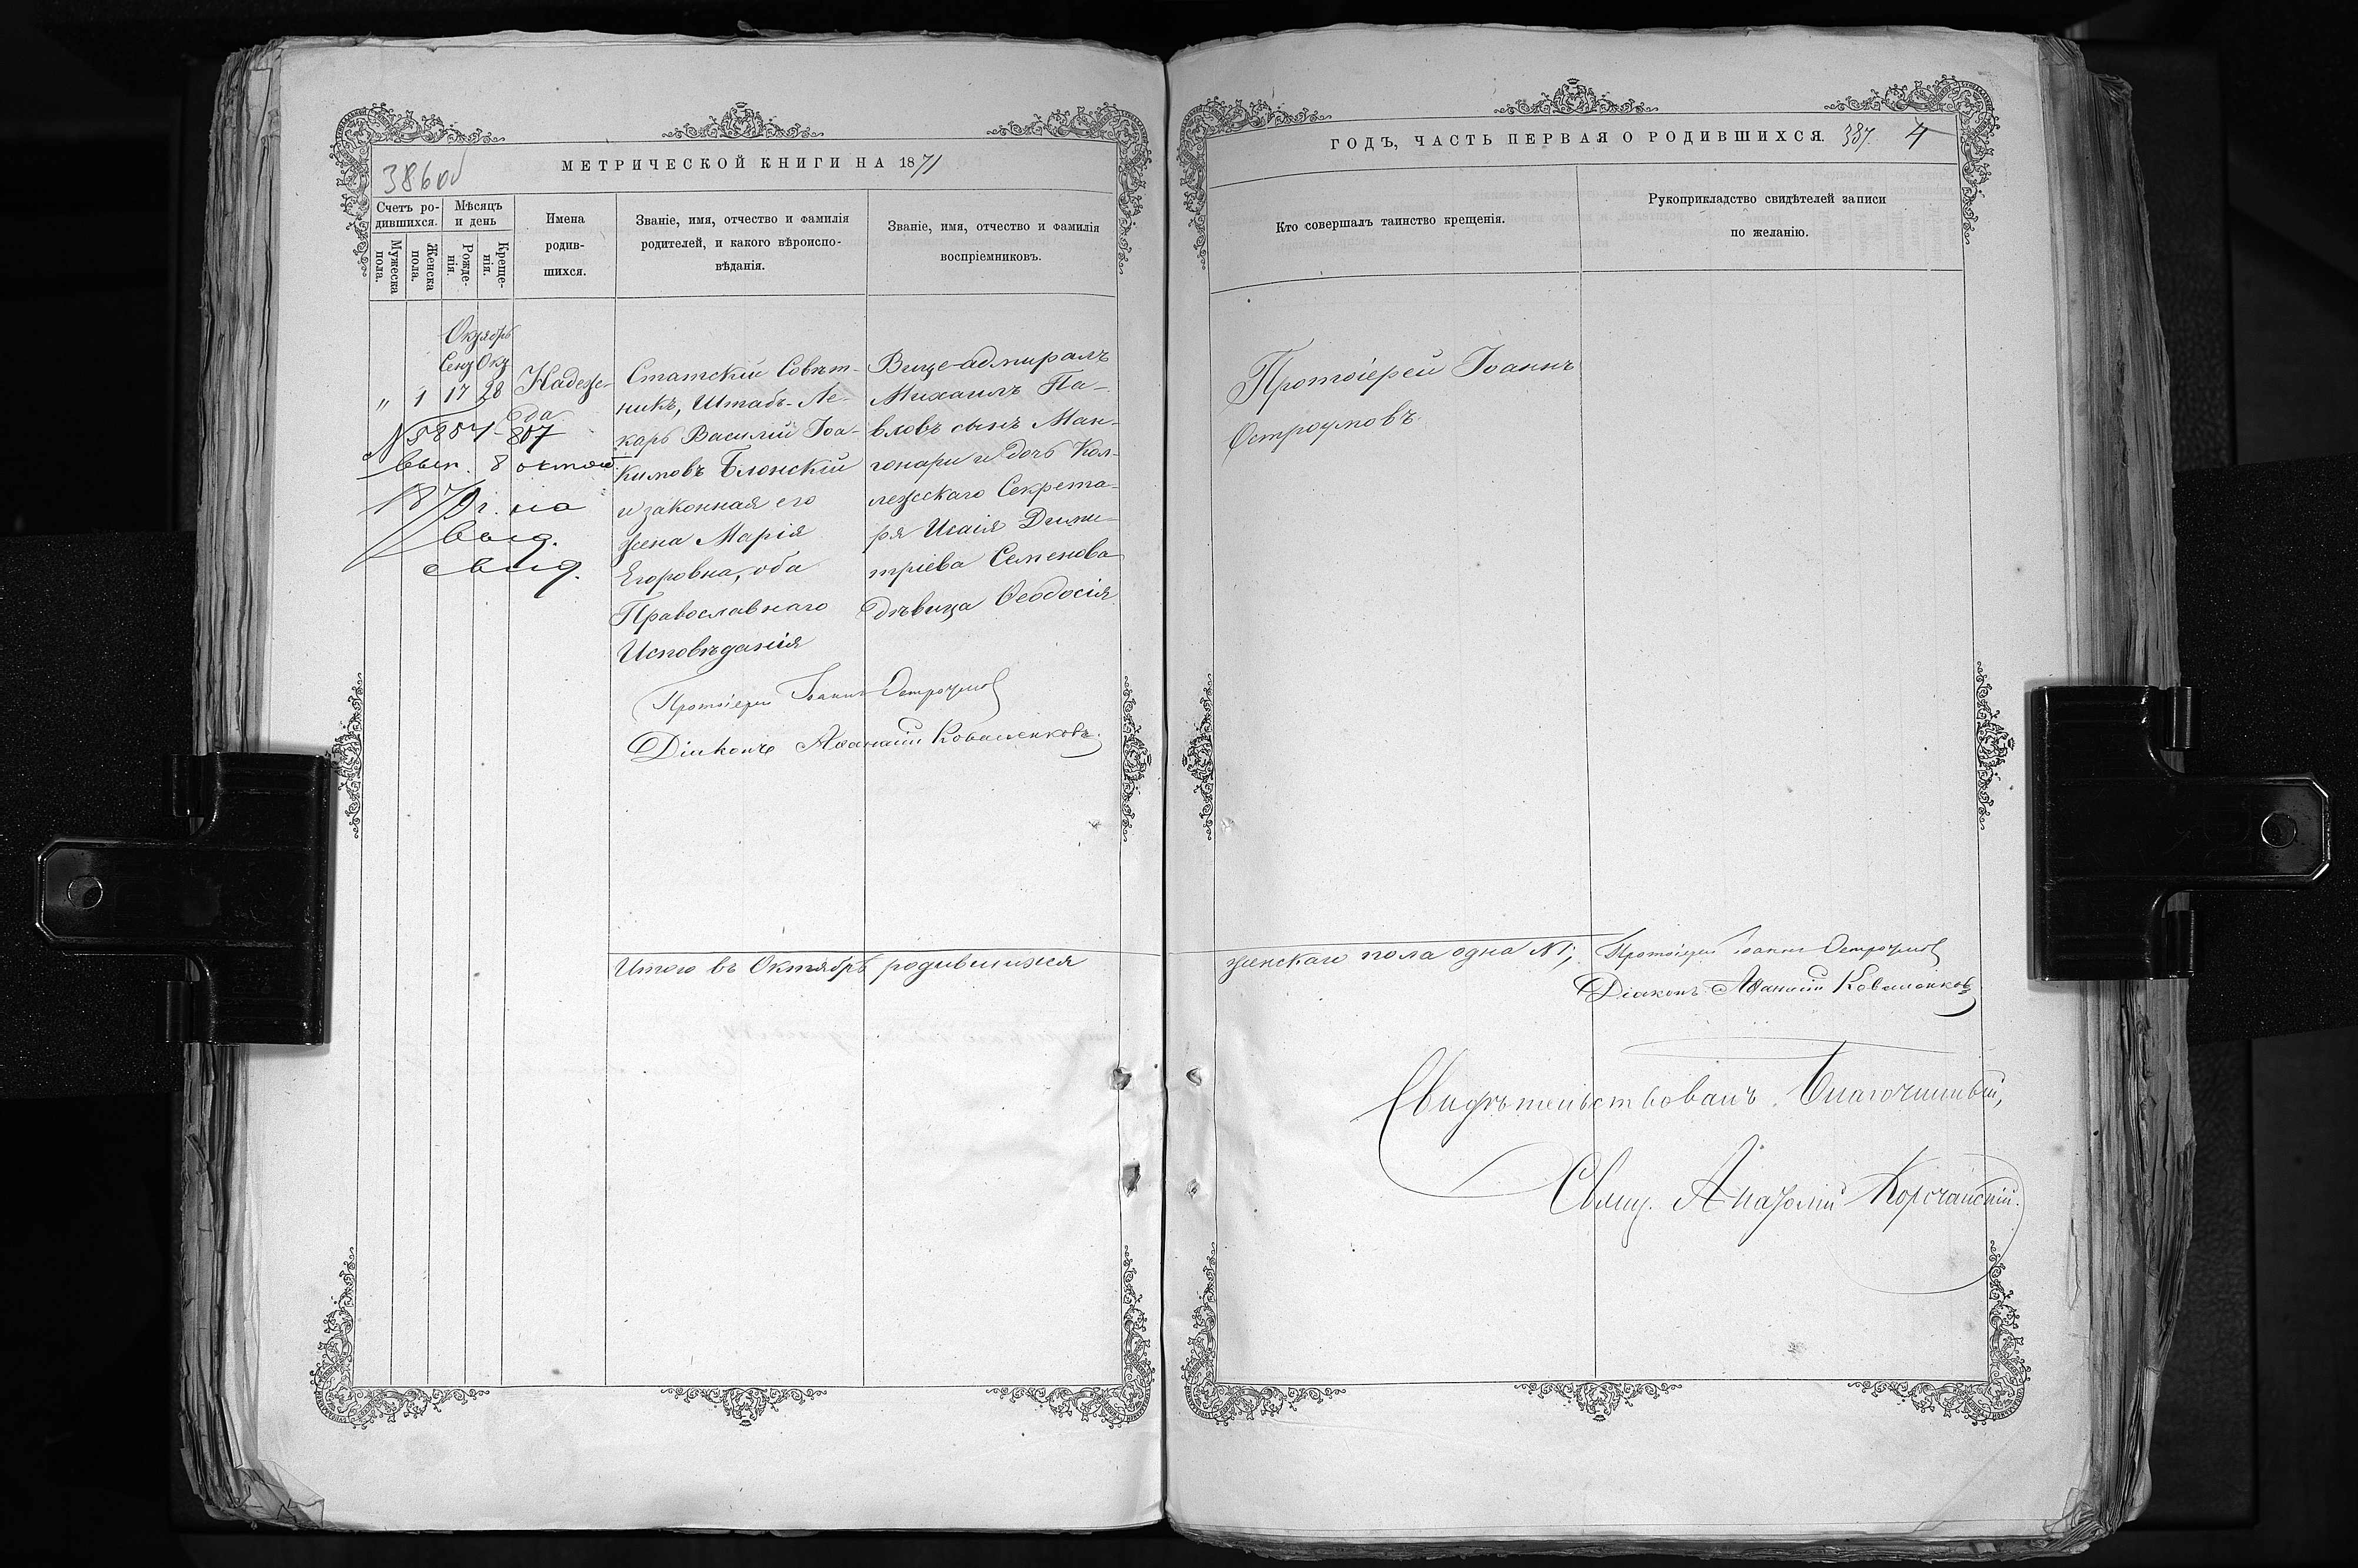 386 об
МЕТРИЧЕСКОЙ КНИГИ НА 1871
Счетъ ро-
дившихся.
Мужеска
пола.
Женска
пола.
Мѣсяцъ
и день
Рожде-
нія.
Креще-
нія.
Имена
родив-
шихся.
Званіе, имя, отчество и фамилія
родителей, и какого вѣроиспо-
вѣданія.
Званіе, имя, отчество и фамилія
воспріемниковъ.
Октябрь
Сент Окт
" 1 17 28
Надеж-
да
вып. 8
на
выд.
свид.
Статскій Совѣт-
никъ, Штабъ-Ле-
карь Василій Іоа-
кимовъ Блонскій
и законная его
жена Марія
Егоровна, оба
Православнаго
Исповѣданія
Вице-адмиралъ
Михаилъ Па-
вловъ сынъ Ман-
ганари и дочь Кол-
лежскаго Секрета-
ря Исаія Дими-
тріева Семенова
дѣвица Ѳеодосія
Протоіерей Іоаннъ Остроумов
Діаконъ Аѳанасій Коваленковъ.
Итого въ Октябрѣ родившихся
ГОДЪ, ЧАСТЬ ПЕРВАЯ О РОДИВШИХСЯ. 387. 4
Кто совершалъ таинство крещенія.
Рукоприкладство свидѣтелей записи
по желанію.
Протоіерей Іоаннъ
Остроумовъ
женскаго пола одна №1,
Протоіерей Іоаннъ Остроумов
Діаконъ Аѳанасій Коваленковъ
Свидѣтельствовалъ Благочинный,
Свящ. Анатолій Корчанскій.